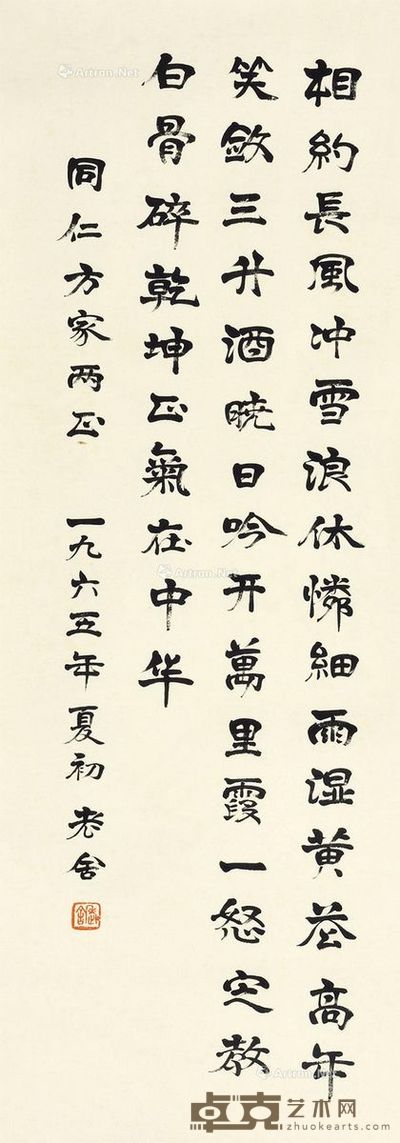 相約長風冲雪浪休憐細雨湿黄花高年
笑斂三升酒曉日吟开萬里霞一怒定教
白骨碎乾坤正氣在中华
同仁方家两正 一九六五年夏初 老舍
老舍
Artron.Net
Artron.Net
Artron.Net
卓克艺术网
zhuokearts.com